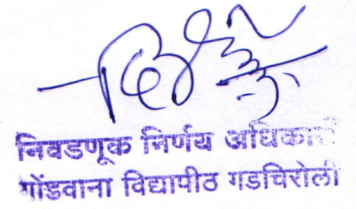 निवडणूक निर्णय अधिकारी
गोंडवाना विद्यापीठ गडचिरोली